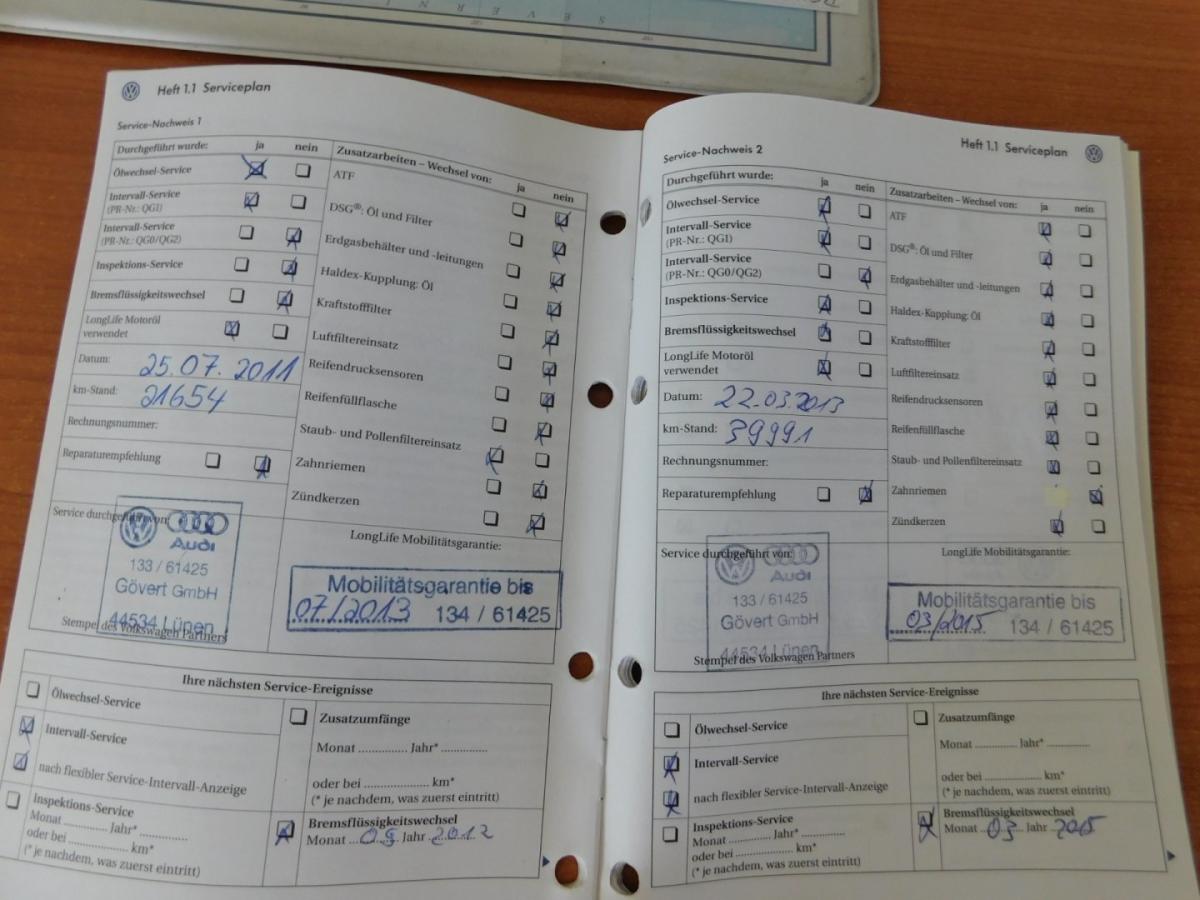 S E V E R N
Heft 1.1 Serviceplan
Service-Nachweis 1
Durchgeführt wurde: ja nein
Ölwechsel-Service
Intervall-Service
(PR-Nr.: QG1)
Intervall-Service
(PR-Nr.: QG0/QG2)
Inspektions-Service
Bremsflüssigkeitswechsel
LongLife Motoröl
verwendet
Datum: 25.07.2011
km-Stand: 21654
Rechnungsnummer:
Reparaturempfehlung
Zusatzarbeiten – Wechsel von: ja nein
ATF
DSG®: Öl und Filter
Erdgasbehälter und -leitungen
Haldex-Kupplung: Öl
Kraftstofffilter
Luftfiltereinsatz
Reifendrucksensoren
Reifenfüllflasche
Staub- und Pollenfiltereinsatz
Zahnriemen
Zündkerzen
Service durchgeführt von:
Audi
133 / 61425
Gövert GmbH
44534 Lünen
Stempel des Volkswagen Partners
LongLife Mobilitätsgarantie:
Mobilitätsgarantie bis
07/2013 134 / 61425
Ihre nächsten Service-Ereignisse
Ölwechsel-Service
Intervall-Service
nach flexibler Service-Intervall-Anzeige
Inspektions-Service
Monat ............ Jahr* ............
oder bei ............ km*
(* je nachdem, was zuerst eintritt)
Zusatzumfänge
Monat ............ Jahr* ............
oder bei ............ km*
(* je nachdem, was zuerst eintritt)
Bremsflüssigkeitswechsel
Monat Jahr 2012
Heft 1.1 Serviceplan
Service-Nachweis 2
Durchgeführt wurde: ja nein
Ölwechsel-Service
Intervall-Service
(PR-Nr.: QG1)
Intervall-Service
(PR-Nr.: QG0/QG2)
Inspektions-Service
Bremsflüssigkeitswechsel
LongLife Motoröl
verwendet
Datum: 22.03.2013
km-Stand: 39991
Rechnungsnummer:
Reparaturempfehlung
Zusatzarbeiten – Wechsel von: ja nein
ATF
DSG®: Öl und Filter
Erdgasbehälter und -leitungen
Haldex-Kupplung: Öl
Kraftstofffilter
Luftfiltereinsatz
Reifendrucksensoren
Reifenfüllflasche
Staub- und Pollenfiltereinsatz
Zahnriemen
Zündkerzen
Service durchgeführt von:
Audi
133 / 61425
Gövert GmbH
44534 Lünen
Stempel des Volkswagen Partners
LongLife Mobilitätsgarantie:
Mobilitätsgarantie bis
03/2015 134 / 61425
Ihre nächsten Service-Ereignisse
Ölwechsel-Service
Intervall-Service
nach flexibler Service-Intervall-Anzeige
Inspektions-Service
Monat ............ Jahr* ............
oder bei ............ km*
(* je nachdem, was zuerst eintritt)
Zusatzumfänge
Monat ............ Jahr* ............
oder bei ............ km*
(* je nachdem, was zuerst eintritt)
Bremsflüssigkeitswechsel
Monat 03 Jahr 2015